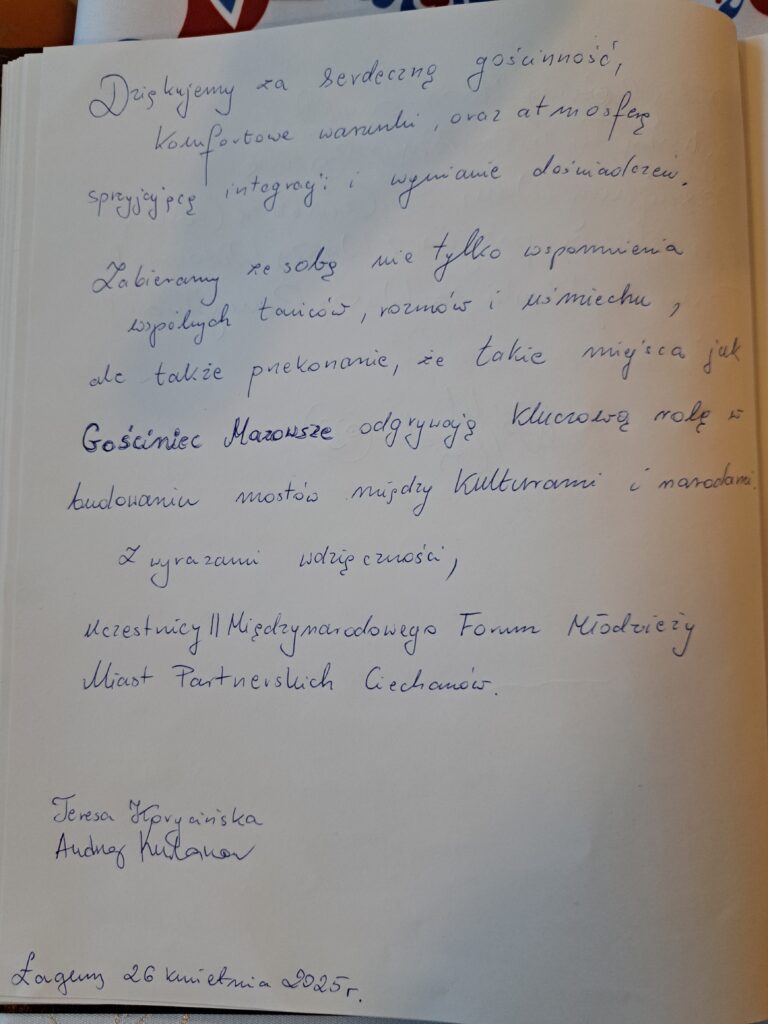 Dziękujemy za serdeczną gościnność,
komfortowe warunki, oraz atmosferę
sprzyjającą integracji i wymianie doświadczeń.
Zabieramy ze sobą nie tylko wspomnienia
wspólnych tańców, rozmów i uśmiechu,
ale także przekonanie, że takie miejsca jak
Gościniec Mazowsze odgrywają kluczową rolę w
budowaniu mostów między kulturami i narodami.
Z wyrazami wdzięczności,
uczestnicy II Międzynarodowego Forum Młodzieży
Miast Partnerskich Ciechanów.
Teresa Korycińska
Andrzej
26 kwietnia 2025 r.